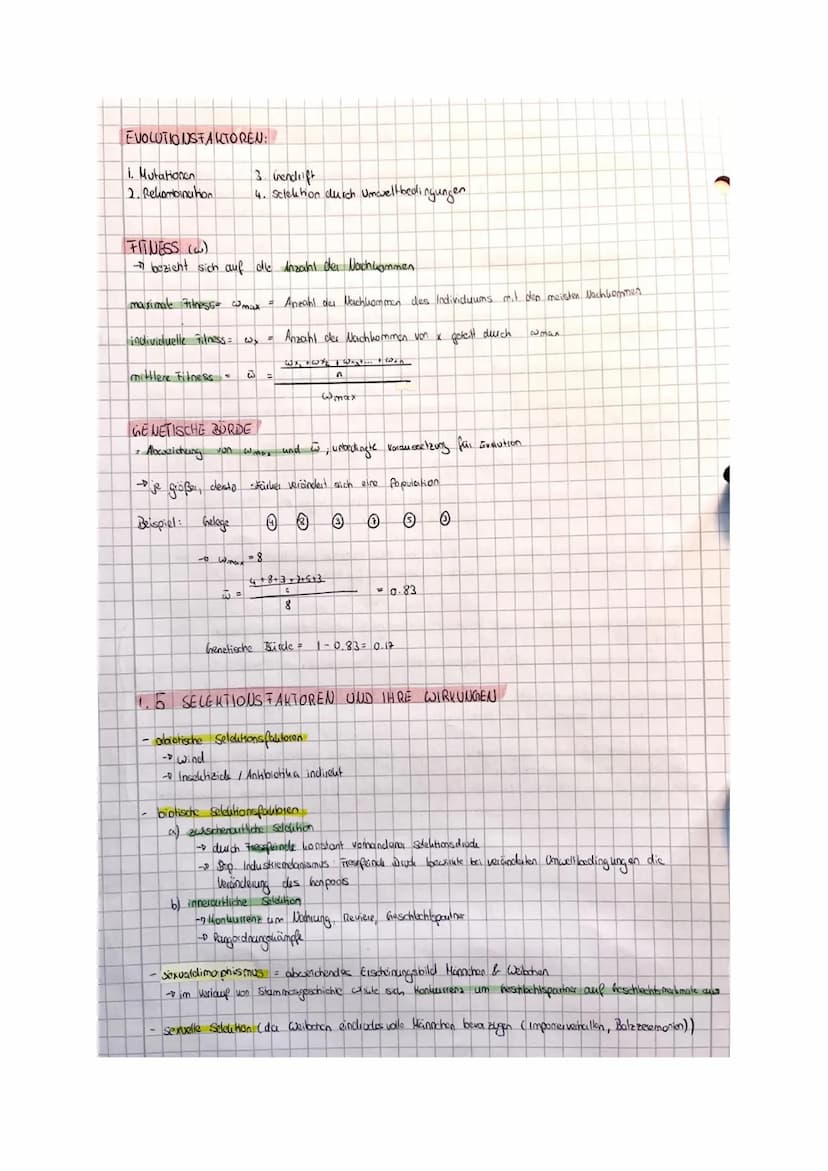 EVOLUTIONSFAKTOREN:
1. Mutationen 3. Gendrift
2. Rekombination 4. Selektion durch Umweltbedingungen
FITNESS (ω)
→ bezieht sich auf die Anzahl der Nachkommen
maximale Fitness = ωmax = Anzahl der Nachkommen des Individuums mit den meisten Nachkommen
individuelle Fitness = ωx = Anzahl der Nachkommen von x geteilt durch ωmax
mittlere Fitness = ω̄ = ωx1 + ωx2 + ωx3 + ... + ωxn
n
ωmax
GENETISCHE BÜRDE
= Abweichung von ωmax und ω̄, unbedingte Voraussetzung für Evolution
→ je größer, desto stärker verändert sich eine Population
Beispiel: Gelege 4 8 3 7 5 3
→ ωmax = 8
ω̄ = 4+8+3+7+5+3 = 0.83
8
Genetische Bürde = 1 - 0.83 = 0.17
1.5 SELEKTIONSFAKTOREN UND IHRE WIRKUNGEN
- abiotische Selektionsfaktoren
→ Wind
→ Insektizide / Antibiotika indirekt
- biotische Selektionsfaktoren
a) zwischenartliche Selektion
→ durch Fressfeinde konstant vorhandene Selektionsdrücke
→ Bsp. Industriemelanismus: Fressfeinde Druck bewirkte bei veränderten Umweltbedingungen die
Veränderung des Genpools
b) innerartliche Selektion
→ Konkurrenz um Nahrung, Reviere, Geschlechtspartner
→ Rangordnungskämpfe
- Sexualdimorphismus = abweichendes Erscheinungsbild Männchen & Weibchen
→ im Verlauf von Stammesgeschichte wirkte sich Konkurrenz um Geschlechtspartner auf Geschlechtsmerkmale aus
- sexuelle Selektion (da Weibchen eindrucksvolle Männchen bevorzugen (Imponierverhalten, Balzzeremonien))